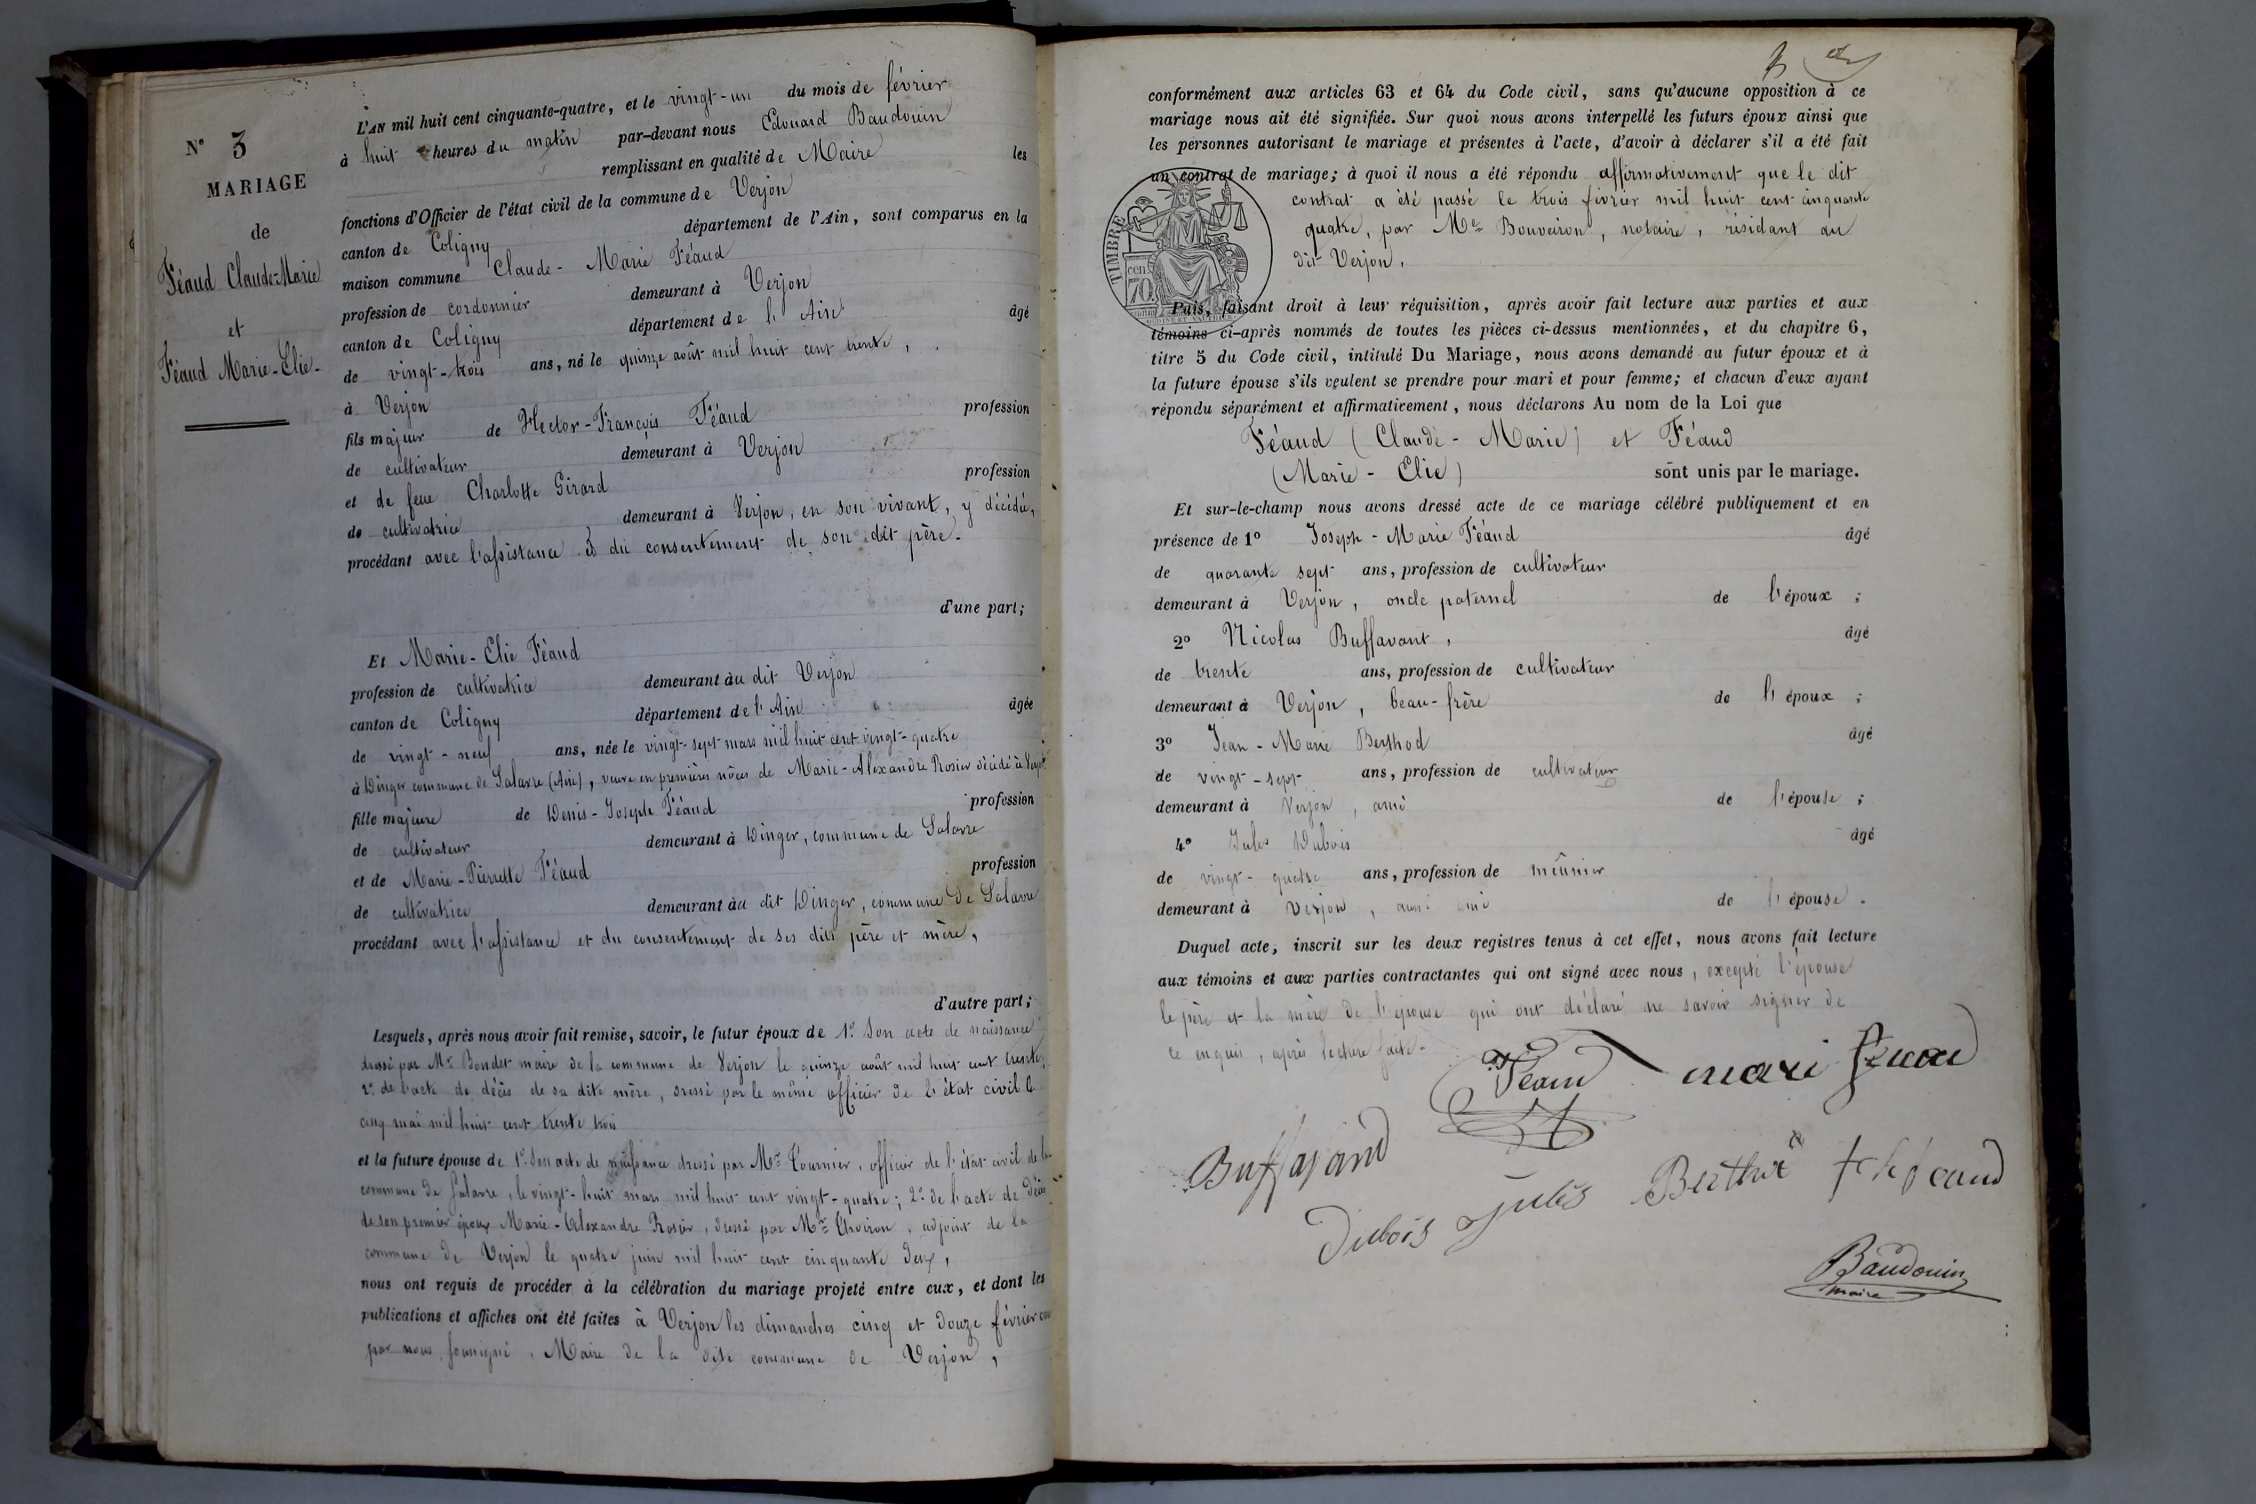 N° 3
MARIAGE
de
Féaud Claude-Marie
et
Féaud Marie-Elie-
L'AN mil huit cent cinquante-quatre, et le vingt-un du mois de février
à huit heures du matin par-devant nous Edouard Baudouin
remplissant en qualité de Maire les
fonctions d'Officier de l'état civil de la commune de Verjon
canton de Coligny département de l'Ain, sont comparus en la
maison commune Claude-Marie Féaud
profession de cordonnier demeurant à Verjon
canton de Coligny département de l'Ain âgé
de vingt-trois ans, né le quinze août mil huit cent trente,
à Verjon
fils majeur de Hector-François Féaud profession
de cultivateur demeurant à Verjon
et de feue Charlotte Girard profession
de cultivatrice demeurant à Verjon, en son vivant, y décédée,
procédant avec l'assistance et du consentement de son dit père.
d'une part;
Et Marie-Elie Féaud
profession de cultivatrice demeurant au dit Verjon
canton de Coligny département de l'Ain âgée
de vingt-neuf ans, née le vingt-sept mars mil huit cent vingt-quatre
à Dinger commune de Salavre (Ain), veuve en premières nôces de Marie-Alexandre Rosier décédé à Verjon
fille majeure de Denis-Joseph Féaud profession
de cultivateur demeurant à Dinger, commune de Salavre
et de Marie-Pierrette Féaud profession
de cultivatrice demeurant au dit Dinger, commune de Salavre
procédant avec l'assistance et du consentement de ses dits père et mère,
d'autre part;
Lesquels, après nous avoir fait remise, savoir, le futur époux de 1° Son acte de naissance
dressé par Mr Bondet maire de la commune de Verjon le quinze août mil huit cent trente,
2° de l'acte de décès de sa dite mère, dressé par le même officier de l'état civil le
cinq mai mil huit cent trente trois
et la future épouse de 1° Son acte de naissance dressé par Mr Tournier, officier de l'état civil de la
commune de Salavre, le vingt-huit mars mil huit cent vingt-quatre; 2° de l'acte de décès
de son premier époux Marie-Alexandre Rosier, dressé par Mr Thoiron, adjoint de la
commune de Verjon le quatre juin mil huit cent cinquante deux,
nous ont requis de procéder à la célébration du mariage projeté entre eux, et dont les
publications et affiches ont été faites à Verjon les dimanches cinq et douze février
par nous soussigné, Maire de la dite commune de Verjon,
conformément aux articles 63 et 64 du Code civil, sans qu'aucune opposition à ce
mariage nous ait été signifiée. Sur quoi nous avons interpellé les futurs époux ainsi que
les personnes autorisant le mariage et présentes à l'acte, d'avoir à déclarer s'il a été fait
un contrat de mariage; à quoi il nous a été répondu affirmativement que le dit
contrat a été passé le trois février mil huit cent cinquante
quatre, par Me Bouveiron, notaire, résidant au
dit Verjon.
TIMBRE
cen. 70.
Puis, faisant droit à leur réquisition, après avoir fait lecture aux parties et aux
témoins ci-après nommés de toutes les pièces ci-dessus mentionnées, et du chapitre 6,
titre 5 du Code civil, intitulé Du Mariage, nous avons demandé au futur époux et à
la future épouse s'ils veulent se prendre pour mari et pour femme; et chacun d'eux ayant
répondu séparément et affirmativement, nous déclarons Au nom de la Loi que
Féaud (Claude-Marie) et Féaud
(Marie-Elie) sont unis par le mariage.
Et sur-le-champ nous avons dressé acte de ce mariage célébré publiquement et en
présence de 1° Joseph-Marie Féaud âgé
de quarante sept ans, profession de cultivateur
demeurant à Verjon, oncle paternel de l'époux ;
2° Nicolas Buffavant, âgé
de trente ans, profession de cultivateur
demeurant à Verjon, beau-frère de l'époux ;
3° Jean-Marie Berthod âgé
de vingt-sept ans, profession de cultivateur
demeurant à Verjon, ami de l'épouse ;
4° Jules Dubois âgé
de vingt-quatre ans, profession de meûnier
demeurant à Verjon, aussi ami de l'épouse.
Duquel acte, inscrit sur les deux registres tenus à cet effet, nous avons fait lecture
aux témoins et aux parties contractantes qui ont signé avec nous, excepté l'épouse
le père et la mère de l'épouse qui ont déclaré ne savoir signer de
ce enquis, après lecture faite.
Féaud mari feaud
Buffavand
Dubois Jules Berthod feaud
Baudouin
maire